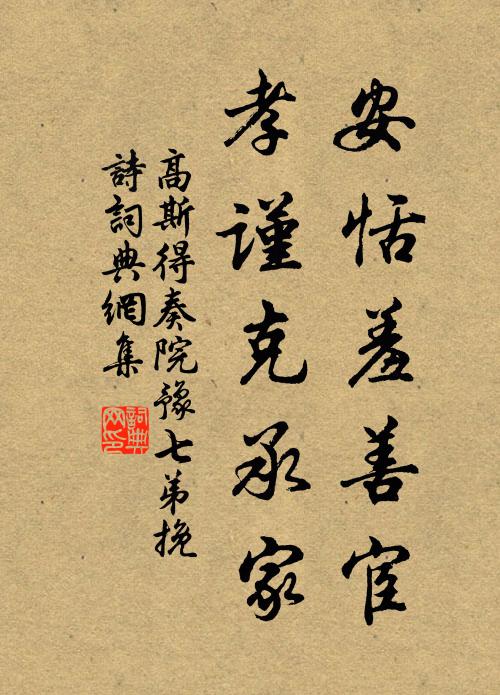 安恬羞善宦
孝謹克承家
高斯得奏院豫七弟挽
詩詞典網集
詞典網印